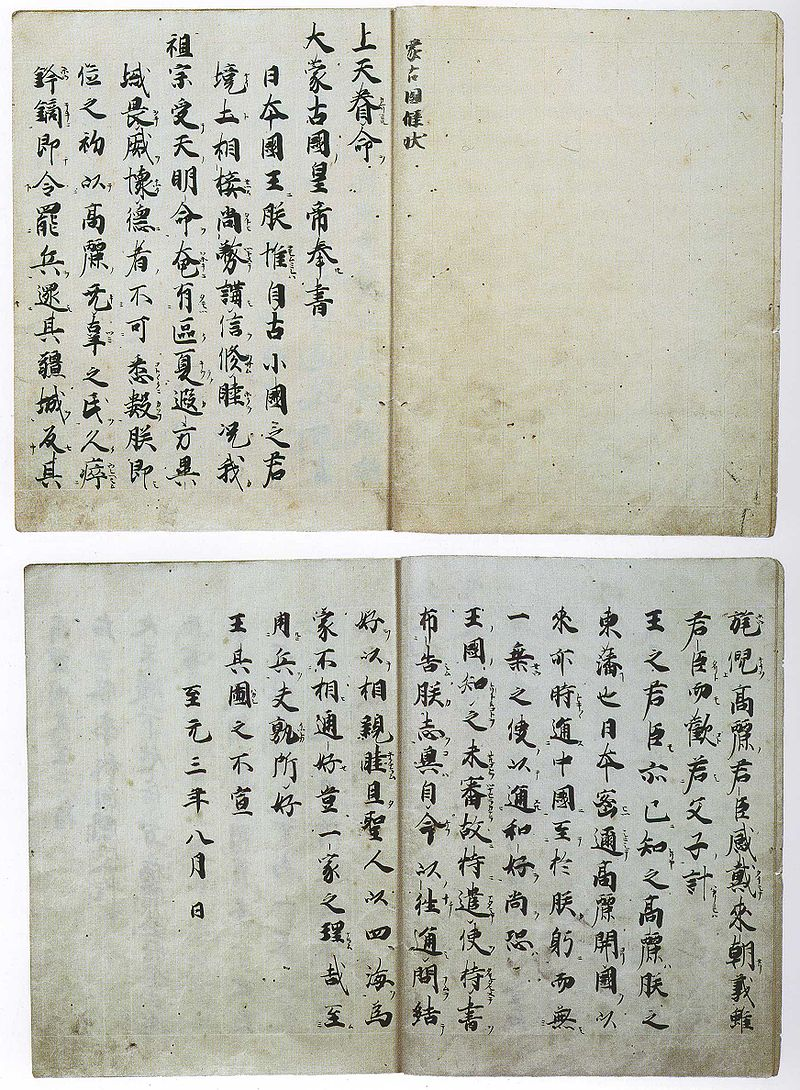 蒙古國牒状
上天眷命
大蒙古國皇帝奉書
日本國王朕惟自古小國之君
境土相接尚務講信修睦况我
祖宗受天明命奄有區夏遐方異
域畏威懷德者不可悉數朕即
位之初以高麗无辜之民久瘁
鋒鏑即令罷兵還其疆域反其
旄倪高麗君臣感戴來朝義雖
君臣而歡若父子計
王之君臣亦已知之高麗朕之
東藩也日本密邇高麗開國以
來亦時通中國至於朕躬而無
一乘之使以通和好尚恐
王國知之未審故特遣使持書
布告朕志冀自今以往通問結
好以相親睦且聖人以四海為
家不相通好豈一家之理哉至
用兵夫孰所好
王其圖之不宣
至元三年八月日